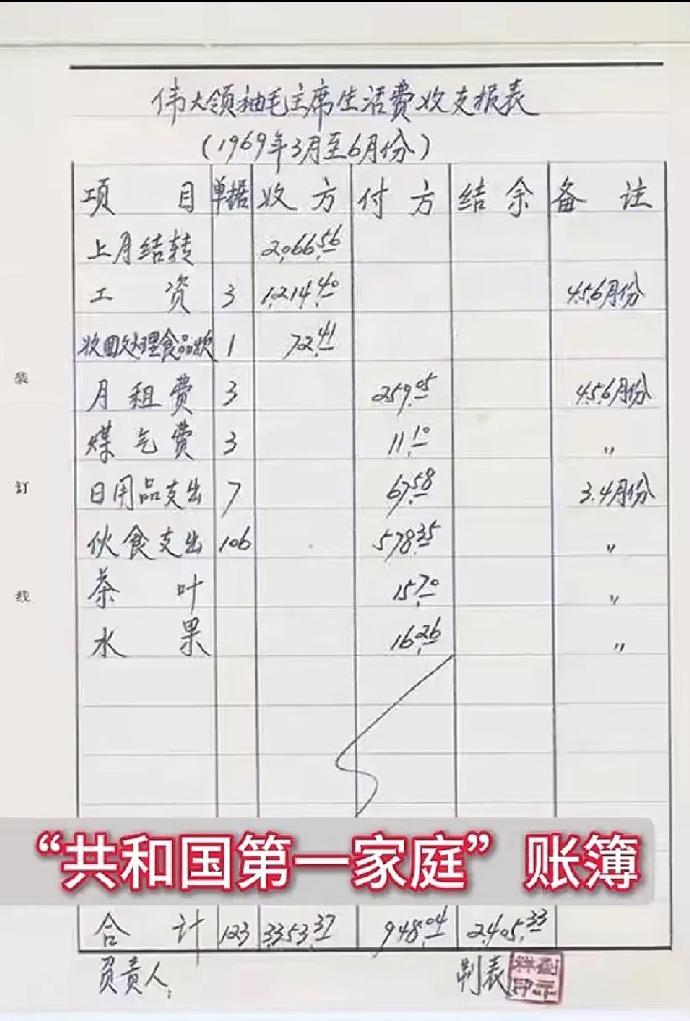 伟大领袖毛主席生活费收支报表
(1969年3月至6月份)
项目 单据 收方 付方 结余 备注
上月结转 2,066.56
工资 3 1,214.40 4.5.6月份
收回处理食品款 1 72.41
月租费 3 259.05 4.5.6月份
煤气费 3 11.10 〃
日用品支出 7 67.58 3.4月份
伙食支出 106 578.35 〃
茶叶 15.70 〃
水果 16.26 〃
“共和国第一家庭”账簿
合计 123 3,353.37 948.04 2,405.33
负责人: 制表
装
订
线